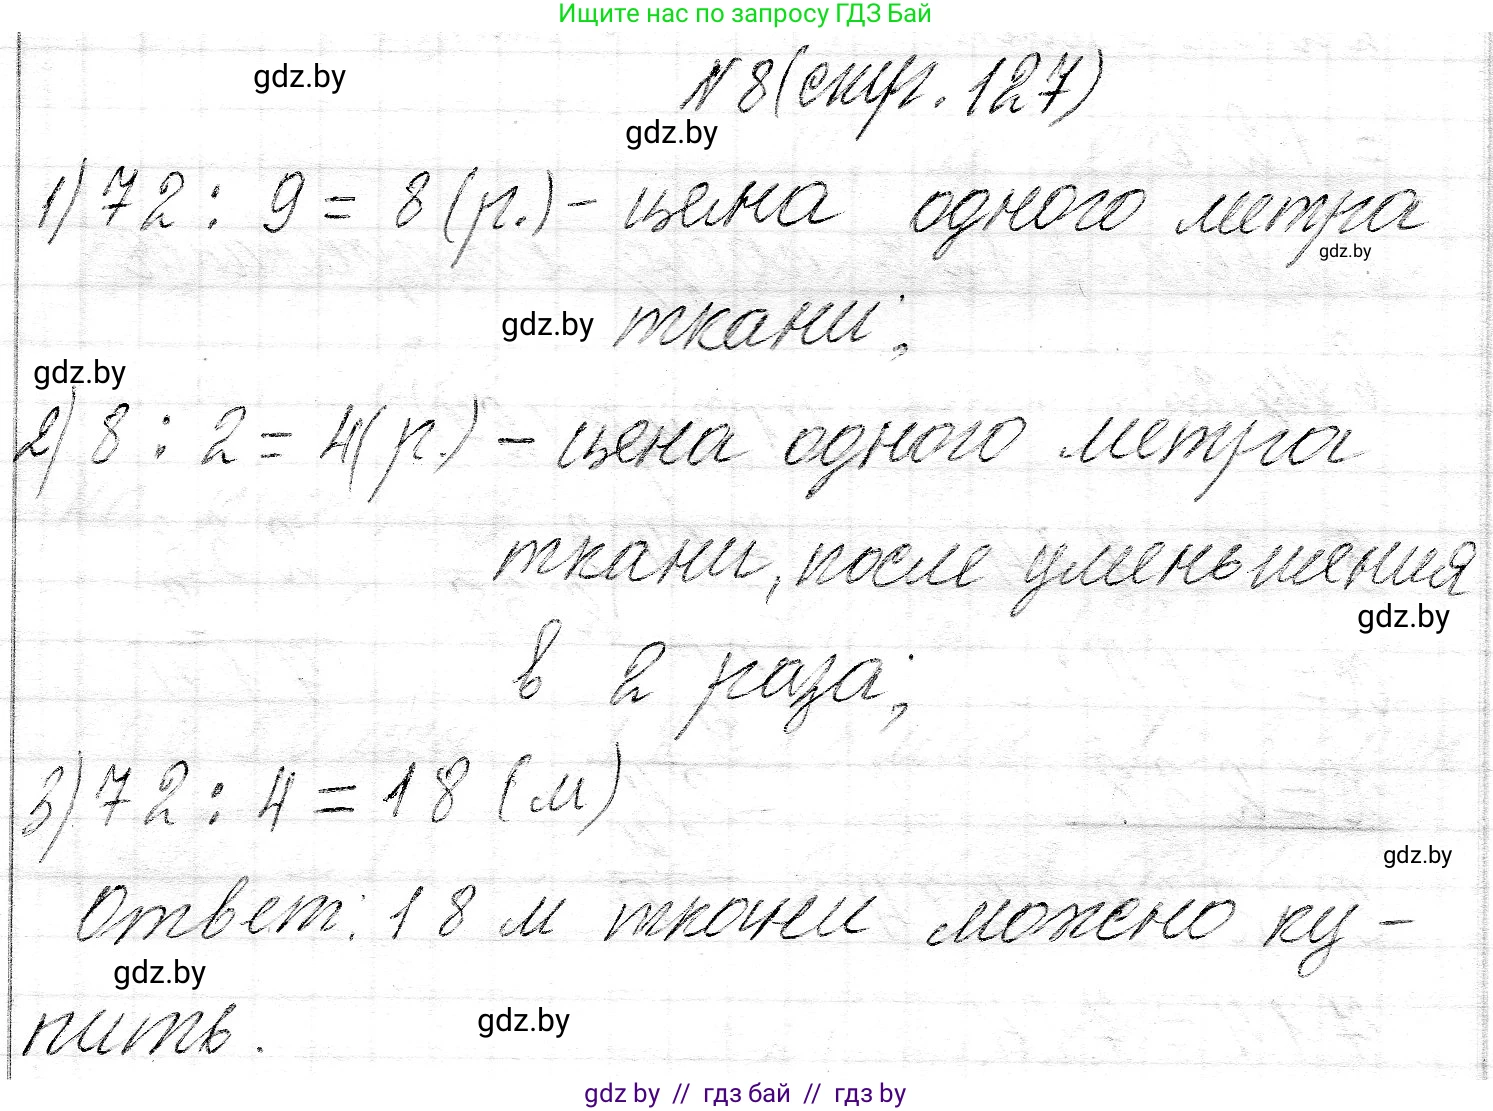 Ищите нас по запросу ГДЗ Бай
gdz.by
N 8 (стр. 127)
gdz.by
1) 72 : 9 = 8 (р.) - цена одного метра
gdz.by
ткани;
gdz.by
gdz.by
2) 8 : 2 = 4 (р.) - цена одного метра
ткани, после уменьшения
gdz.by
в 2 раза;
3) 72 : 4 = 18 (м)
gdz.by
Ответ: 18 м ткани можно ку-
gdz.by
пить.
gdz.by
gdz.by // гдз бай // гдз by